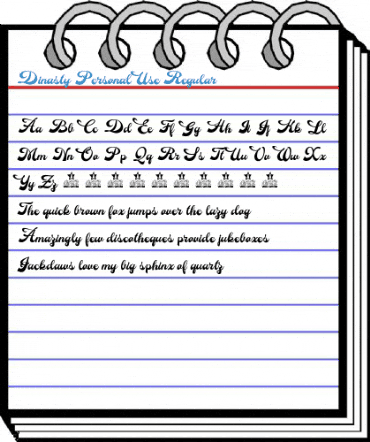 Dinasty Personal Use Regular
Aa Bb Cc Dd Ee Ff Gg Hh Ii Jj Kk Ll
Mm Nn Oo Pp Qq Rr Ss Tt Uu Vv Ww Xx
Yy Zz
The quick brown fox jumps over the lazy dog
Amazingly few discotheques provide jukeboxes
Jackdaws love my big sphinx of quartz